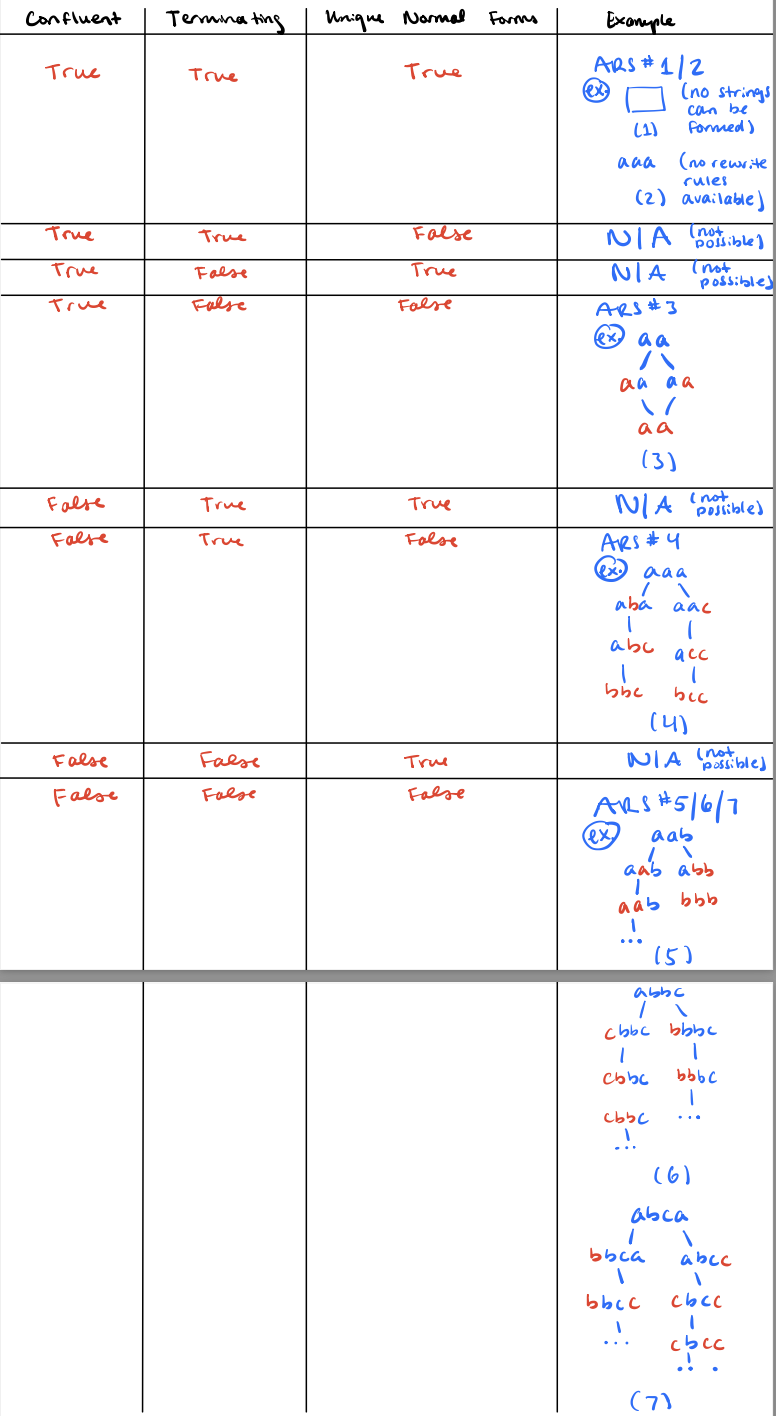 Confluent Terminating Unique Normal Forms Example
True True True ARS #1/2
ex. (no strings
can be
(1) formed)
aaa (no rewrite
rules
(2) available)
True True False N/A (not
possible)
True False True N/A (not
possible)
True False False ARS #3
ex. aa
aa aa
aa
(3)
False True True N/A (not
possible)
False True False ARS #4
ex. aaa
aba aac
abc acc
bbc bcc
(4)
False False True N/A (not
possible)
False False False ARS #5/6/7
ex. aab
aab abb
aab bbb
...
(5)
abbc
cbbc bbbc
cbbc bbbc
cbbc ...
...
(6)
abca
bbca abcc
bbcc cbcc
... cbcc
...
(7)